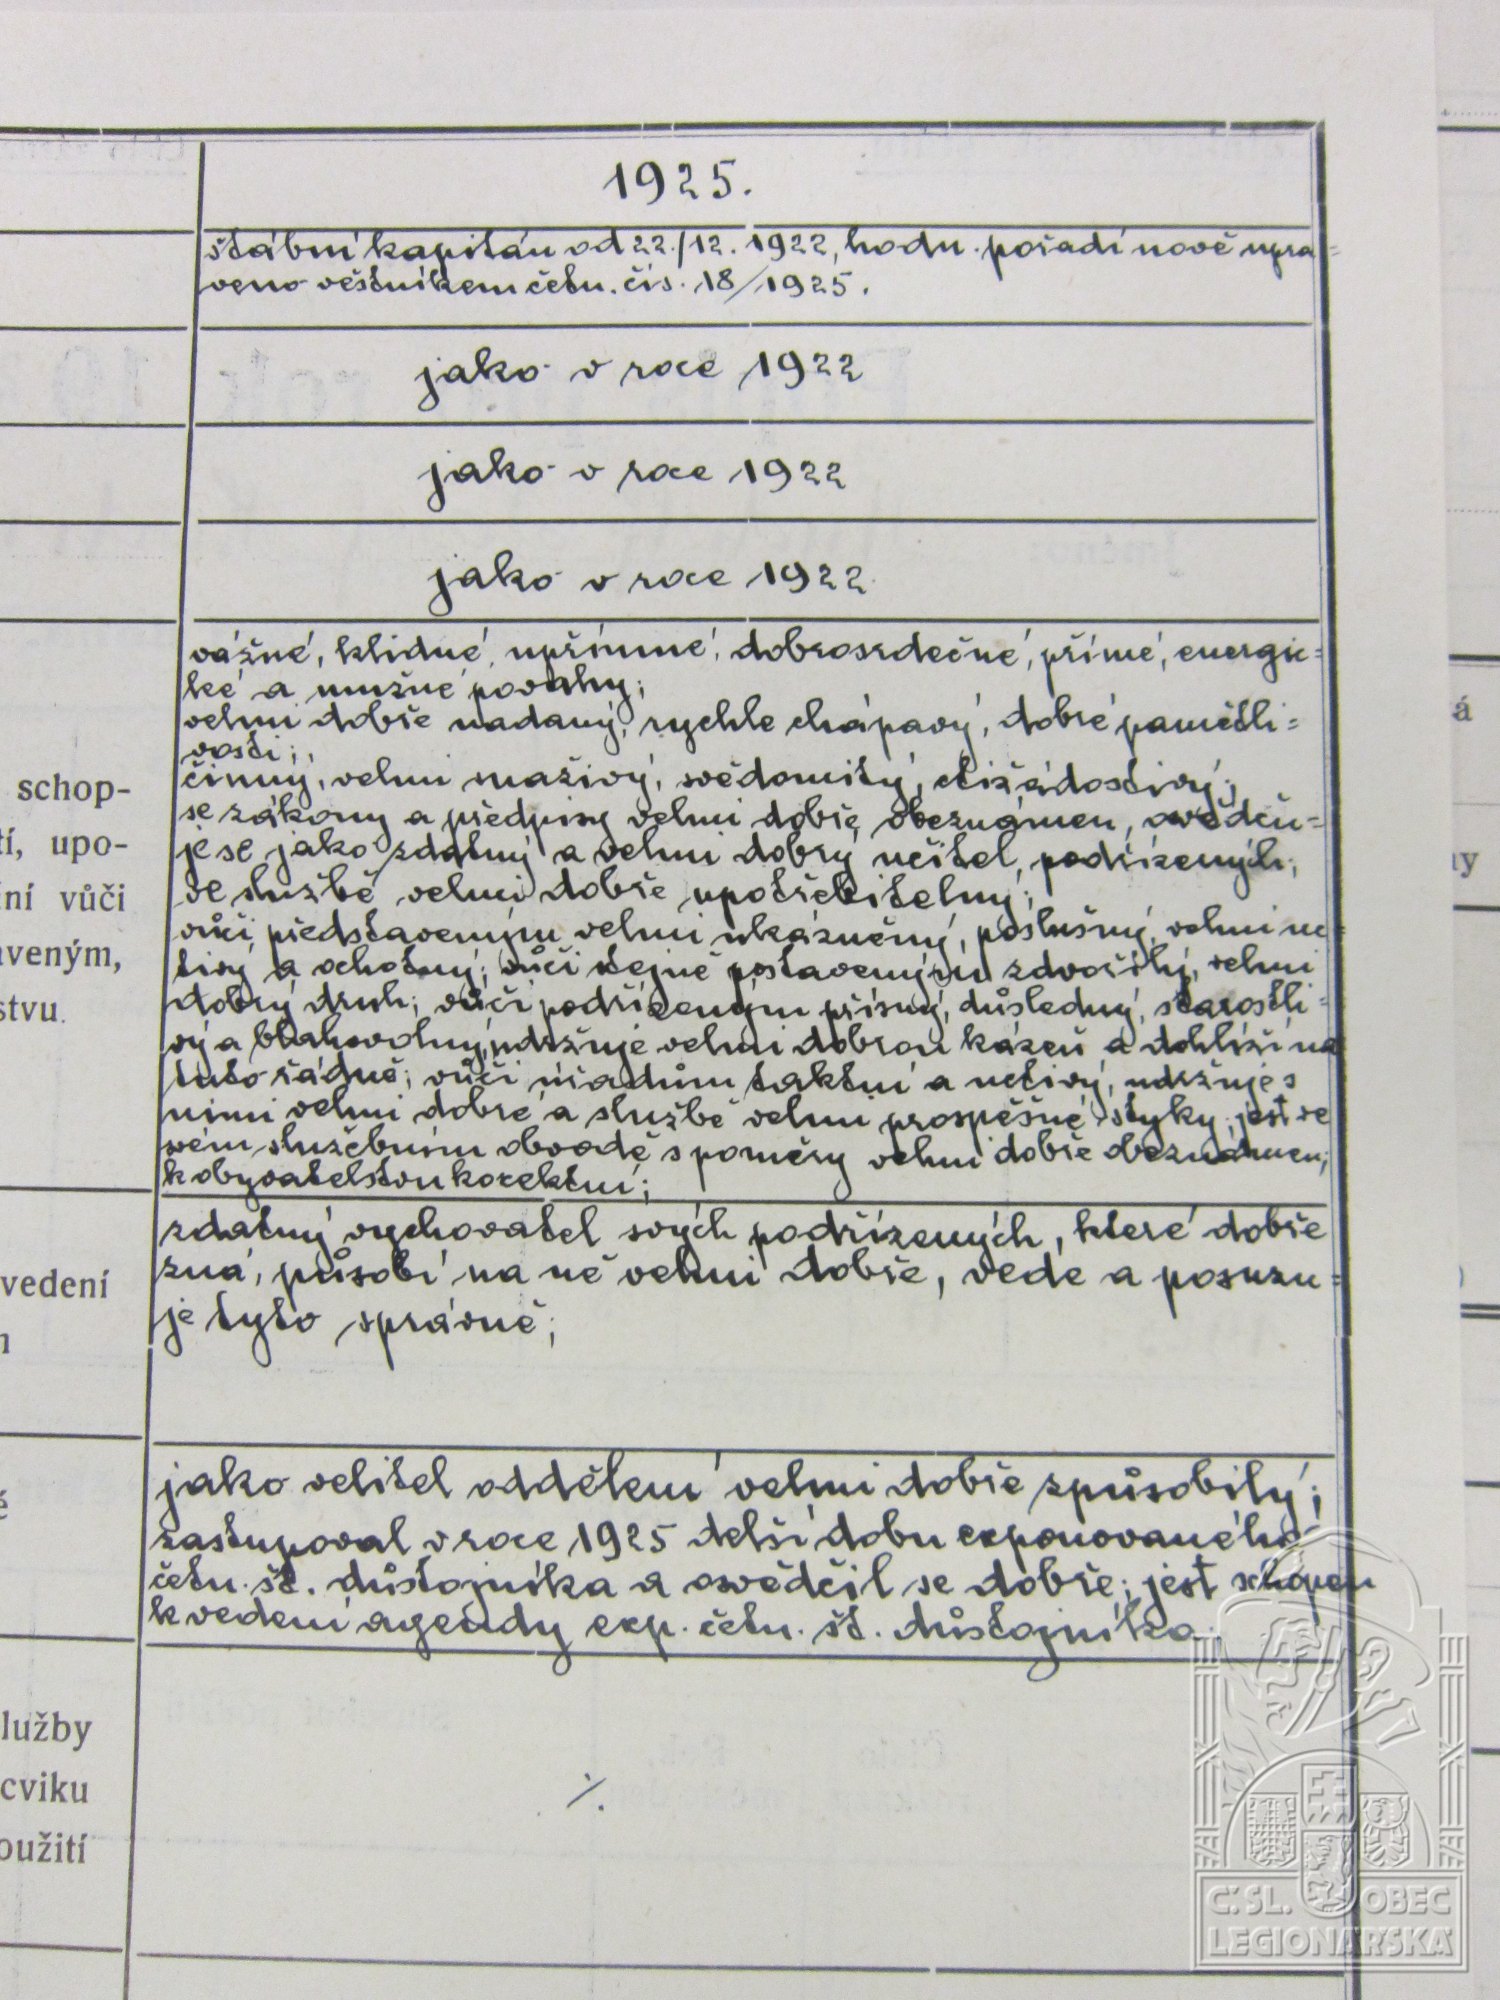 1925.
štábní kapitán od 22./12. 1922, hodn. pořadí nově upra=
veno věstníkem četn. čís. 18/1925.
jako v roce 1922
jako v roce 1922
jako v roce 1922
vážné, klidné, upřímné, dobrosrdečné, přímé, energic=
ké a mužné povahy;
velmi dobře nadaný, rychle chápavý, dobré pamětli=
vosti;
činný, velmi snaživý, svědomitý, ctižádostivý;
se zákony a předpisy velmi dobře obeznámen, osvědču=
je se jako zdatný a velmi dobrý učitel podřízených;
ve službě velmi dobře upotřebitelný;
vůči představeným velmi ukázněný, poslušný, velmi uc
tivý a ochotný; vůči stejně postaveným zdvořilý, velmi
dobrý druh; vůči podřízeným přísný, důsledný, starostli=
vý a blahovolný, udržuje velmi dobrou kázeň a dohlíží na
tuto řádně; vůči úřadům taktní a uctivý, udržuje s
nimi velmi dobré a službě velmi prospěšné styky; jest ve
svém služebním obvodě s poměry velmi dobře obeznámen;
k obyvatelstvu korektní;
zdatný vychovatel svých podřízených, které dobře
zná, působí na ně velmi dobře, vede a posuzu=
je tyto správně;
jako velitel oddělení velmi dobře způsobilý;
zastupoval v roce 1925 delší dobu exponovaného
četn. št. důstojníka a osvědčil se dobře; jest schopen
k vedení agendy exp. četn. št. důstojníka.
./.
schop-
tí, upo-
ní vůči
aveným,
stvu.
vedení
lužby
cviku
oužití
á
ny
Č.SL. OBEC
LEGIONÁŘSKÁ